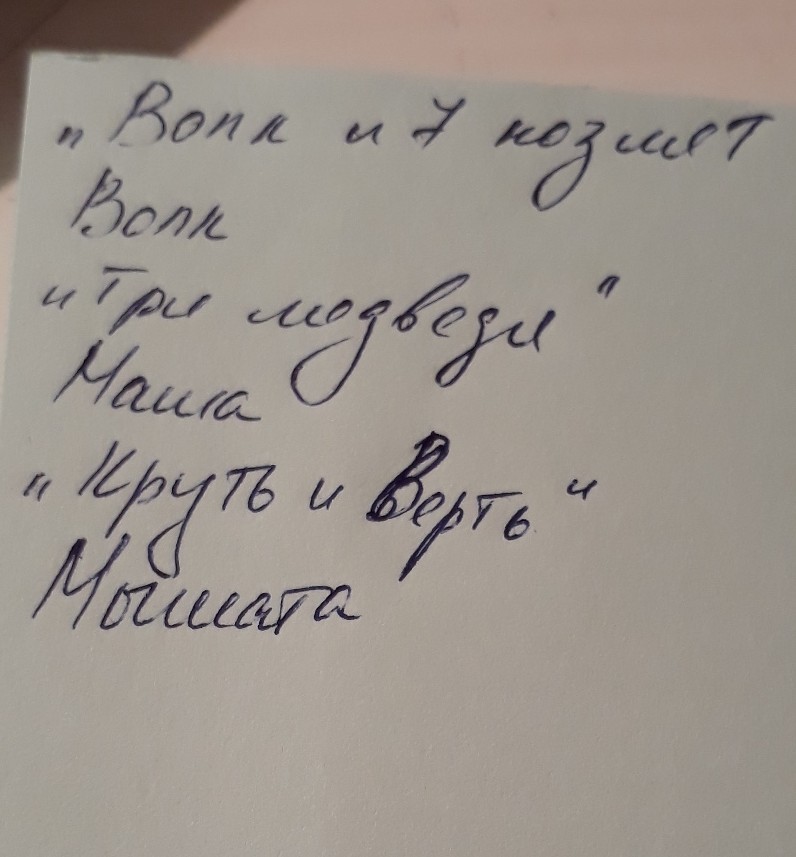 „Волк и 7 козлят
Волк
„Три медведя"
Маша
„Круть и Верть"
Мышата